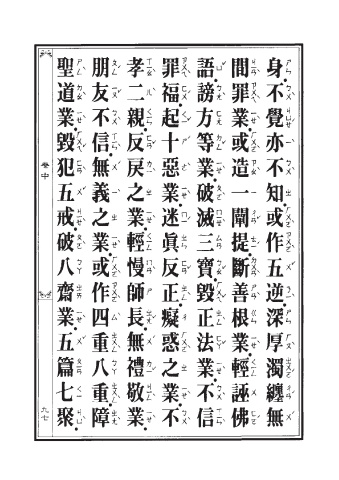 身不覺亦不知。或作五逆。深厚濁纏無
間罪業。或造一闡提。斷善根業。輕誣佛
語。謗方等業。破滅三寶。毀正法業。不信
罪福。起十惡業。迷真反正。癡惑之業。不
孝二親。反戾之業。輕慢師長。無禮敬業。
朋友不信。無義之業。或作四重八重障
聖道業。毀犯五戒。破八齋業。五篇七聚。
卷中
九七